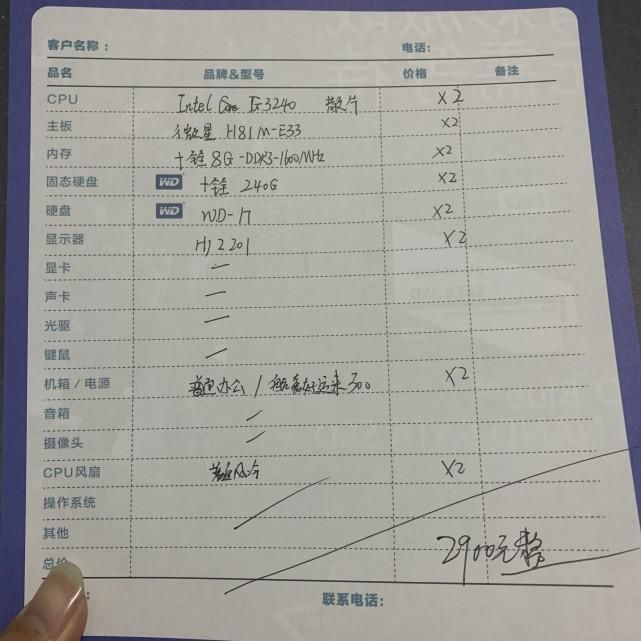 客户名称： 电话：
品名 品牌&型号 价格 备注
CPU Intel Core I3-3240 散片 X2
主板 微星 H81M-E33 X2
内存 十铨 8G-DDR3-1600MHz X2
固态硬盘 WD 十铨 240G X2
硬盘 WD WD-1T X2
显示器 HJ2201 X2
显卡 —
声卡 —
光驱 —
键鼠 —
机箱 / 电源 普通办公 / 航嘉好运来300 X2
音箱
摄像头
CPU风扇 普通风冷 X2
操作系统
其他
总价 2900元整
联系电话：